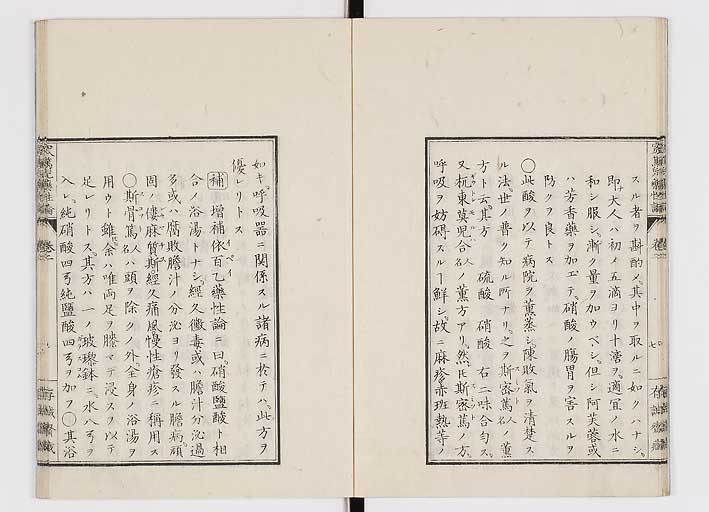 スル者ヲ斟酌メ其中ヲ取ルニ如クハナシ。
即大人ハ初メ五滴ヨリ十滴ヲ。適宜ノ水ニ
和シ服シ。漸ク量ヲ加ウベシ。但シ阿芙蓉或
ハ芳香藥ヲ加エテ硝酸ノ腸胃ヲ害スルヲ
防クヲ良トス
〇此酸ヲ以テ病院ヲ薫蒸シ。陳敗氣ヲ清楚ス
ル法。世ノ普ク知ル所ナリ。之ヲ斯密篤人名ノ薫
方ト云。其方 硫酸 硝酸 右二味合匀ス。
又杭東莫児合人名ノ薫方アリ。然𪜈斯密篤ノ方
呼吸ヲ妨碍スルヿ鮮シ。故ニ麻疹赤斑熱等ノ
如キ。呼吸器ニ関係スル諸病ニ於テハ。此方ヲ
優レリトス
補 増補依百乙藥性論ニ曰。硝酸鹽酸ト相
合ノ浴湯トナシ。經久黴毒或ハ膽汁分泌過
多或ハ腐敗膽汁ノ分泌ヨリ發スル膽病。頑
固ノ僂麻質斯經久痛風慢性瘡疹ニ稱用ス
〇斯骨篤人名ハ頭ヲ除クノ外全身ノ浴湯ヲ
用ウト雖。余ハ唯両足ヲ膝マテ浸スヲ以テ
足レリトス。其方ハ一ノ玻瓈鉢ニ。水八𠔃ヲ
入レ。純硝酸四𠔃純鹽酸四𠔃ヲ加フ〇其浴